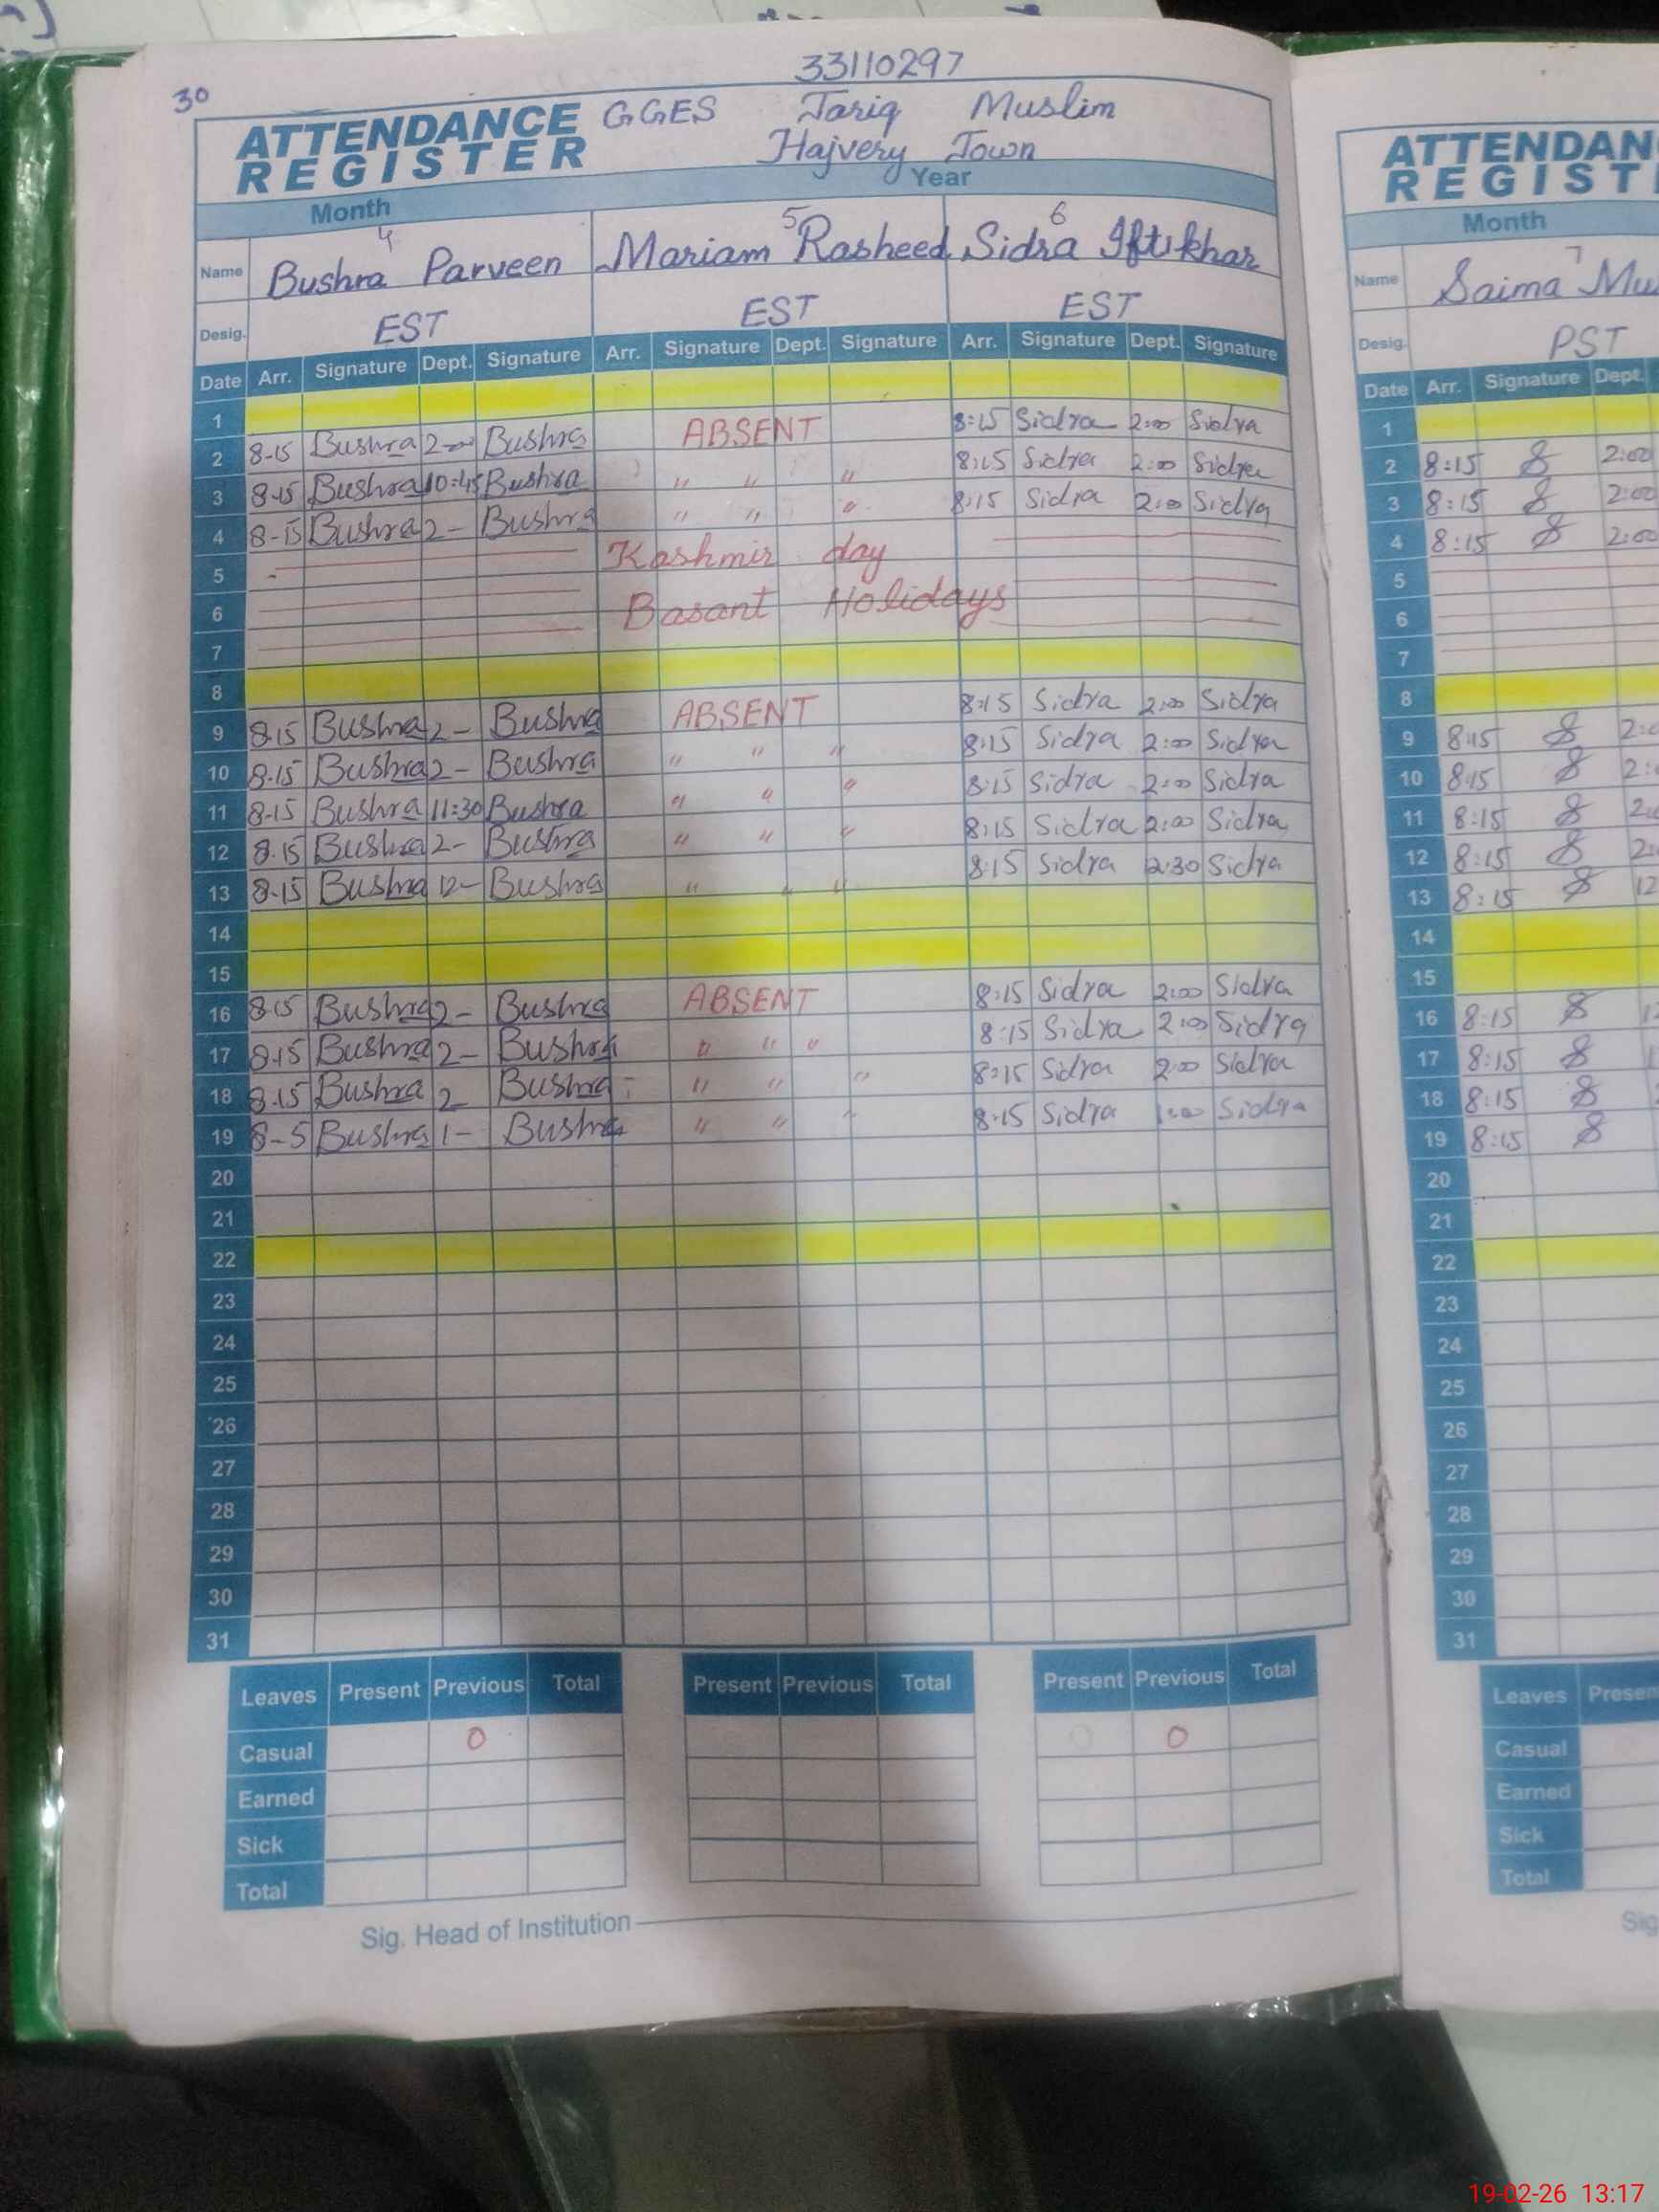 33110297
30
ATTENDANCE GGES Tariq Muslim
REGISTER Hajvery Town
Month Year
4 5 6
Name Bushra Parveen Mariam Rasheed Sidra Iftikhar
Desig. EST EST EST
Date Arr. Signature Dept. Signature Arr. Signature Dept. Signature Arr. Signature Dept. Signature
1
2 8-15 Bushra 2-00 Bushra ABSENT 8:15 Sidra 2:00 Sidra
3 8-15 Bushra 10:45 Bushra " " " 8:15 Sidra 2:00 Sidra
4 8-15 Bushra 2- Bushra " " " 8:15 Sidra 2:00 Sidra
5 Kashmir day
6 Basant Holidays
7
8
9 8-15 Bushra 2- Bushra ABSENT 8:15 Sidra 2:00 Sidra
10 8-15 Bushra 2- Bushra " " " 8:15 Sidra 2:00 Sidra
11 8-15 Bushra 11:30 Bushra " " " 8:15 Sidra 2:00 Sidra
12 8-15 Bushra 2- Bushra " " " 8:15 Sidra 2:00 Sidra
13 8-15 Bushra 12- Bushra " " " 8:15 Sidra 2:30 Sidra
14
15
16 8-15 Bushra 2- Bushra ABSENT 8:15 Sidra 2:00 Sidra
17 8-15 Bushra 2- Bushra " " " 8:15 Sidra 2:00 Sidra
18 8-15 Bushra 2 Bushra " " " 8:15 Sidra 2:00 Sidra
19 8-5 Bushra 1- Bushra " " " 8:15 Sidra 1:00 Sidra
20
21
22
23
24
25
26
27
28
29
30
31
Leaves Present Previous Total Present Previous Total Present Previous Total
Casual 0 0 0
Earned
Sick
Total
Sig. Head of Institution
ATTENDAN
REGIST
Month
7
Name Saima Mu
Desig. PST
Date Arr. Signature Dept.
1
2 8:15 2:00
3 8:15 2:00
4 8:15 2:00
5
6
7
8
9 8:15 2:
10 8:15 2:
11 8:15 2
12 8:15 2:
13 8:15 12
14
15
16 8:15
17 8:15
18 8:15
19 8:15
20
21
22
23
24
25
26
27
28
29
30
31
Leaves Presen
Casual
Earned
Sick
Total
Sig
19-02-26 13:17